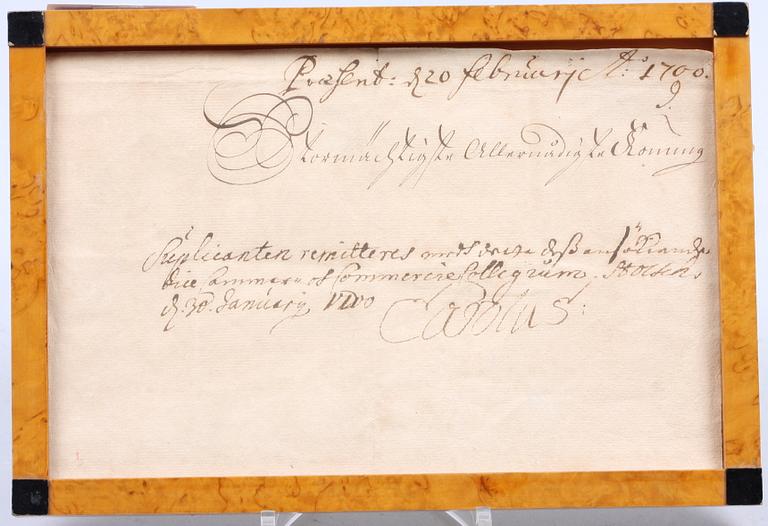 Præsent: d 20 Februarij A: 1700.
9.
Stormächtigste Allernådigste Konung
Supliganten remitteres medh detta deß ansökiande
Cammer- och Commercie Collegium. Stockh.
d. 30 January 1700
Carolus: